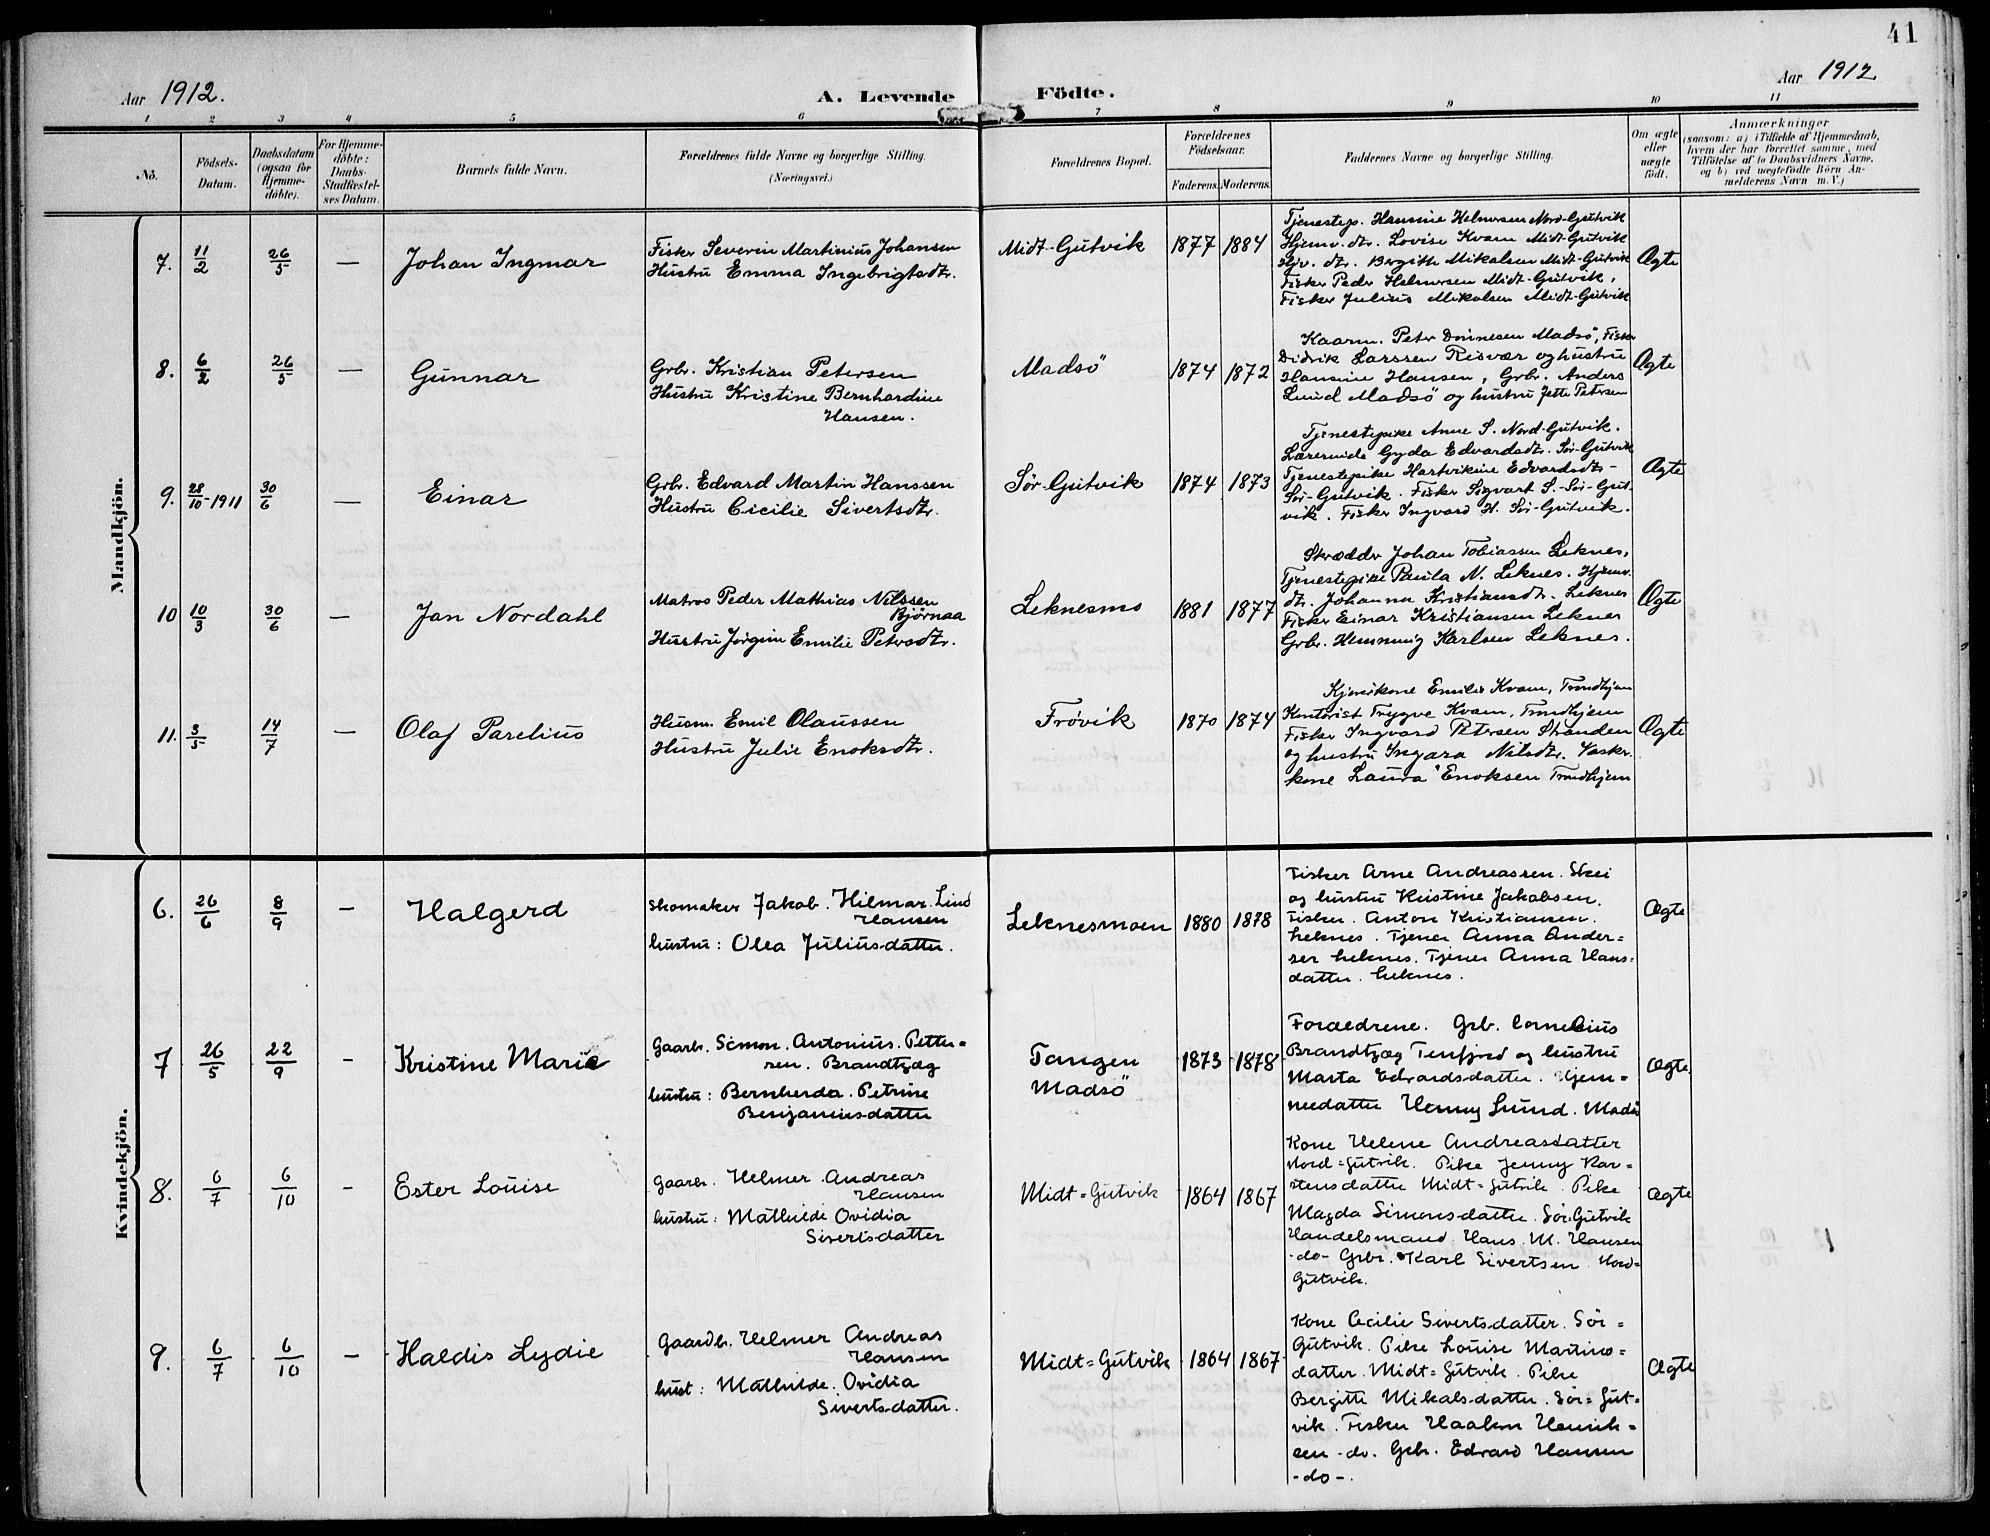 41
Aar 1912.
A. Levende
Födte.
Aar 1912
1 2 3 4 5 6 7 8 9 10 11
No.
Födsels-
Datum.
Daabsdatum
(ogsaa for
Hjemme-
döbte).
For Hjemme-
döbte:
Daabs-
Stadfæstel-
ses Datum.
Barnets fulde Navn.
Forældrenes fulde Navne og borgerlige Stilling.
(Næringsvei.)
Forældrenes Bopæl.
Forældrenes
Födselsaar.
Faderens. Moderens.
Faddernes Navne og borgerlige Stilling.
Om ægte
eller
uægte
født.
Anmærkninger
(saasom: a) i Tilfælde af Hjemmedaab,
hvem der har forrettet samme, med
Tilföielse af to Daabsvidners Navne,
og b) ved uægtefödte Börn An-
melderens Navn m. V.)
Mandkjön.
7. 11/2 26/5 — Johan Ingmar
Fisker Severin Martinius Johansen
Hustru Emma Ingebrigtsdtr.
Midt-Gutvik 1877 1884
Tjenestep. Hansine Helmersen Nord-Gutvik
Hjemv. dtr. Lovise Kvam Midt-Gutvik
Hjv. dtr. Bergitte Mikalsen Midt-Gutvik
Fisker Peder Helmersen Midt-Gutvik,
Fisker Julius Mikalsen Midt-Gutvik
Ægte
8. 6/2 26/5 — Gunnar
Grbr. Kristian Petersen
Hustru Kristine Bernhardine
Hansen.
Madsö 1874 1872
Kaarm. Peter Dønnesen Madsö, Fisker
Didrik Larssen Risvær og hustru
Hansine Hansen, Grbr. Anders
Lund Madsö og hustru Jette Petersen
Ægte
9. 28/10-1911 30/6 — Einar
Grbr. Edvard Martin Hanssen
Hustru Cicilie Sivertsdtr.
Sör-Gutvik 1874 1873
Tjenestepike Anne S. Nord-Gutvik.
Lærerinde Gyda Edvardsdtr. Sör-Gutvik
Tjenestepike Hartvikine Edvardsdtr-
Sör-Gutvik. Fisker Sigvart S.-Sör-Gut-
vik. Fisker Ingvard H. Sör-Gutvik.
Ægte
10 10/3 30/6 — Jan Nordahl
Matros Peder Mathias Nilssen
Bjørnaa
Hustru Jørgine Emilie Petersdtr.
Leknesmo 1881 1877
Skrædder Johan Tobiassen Leknes,
Tjenestepike Paula N. Leknes. Hjemv.
dtr. Johanna Kristiansdtr. Leknes
Fisker Einar Kristiansen Leknes
Grbr. Hemming Karlsen Leknes.
Ægte
11. 3/5 14/7 — Olaf Parelius
Husm. Emil Olaussen
Hustru Julie Enoksdtr.
Frövik 1870 1874
Emilie Kvam, Trondhjem
Kontorist Trygve Kvam, Trondhjem
Fisker Ingvard Petersen Stranden
og hustru Ingara Nilsdtr. Vasker-
kone Laura Enoksen Trondhjem
Ægte
Kvindekjön.
6. 26/6 8/9 — Halgerd
Skomaker Jakob. Hilmar. Lind
Hansen
hustru: Olea Juliusdatter.
Leknesmoen 1880 1878
Fisker Arne Andreassen. Skei
og hustru Kristine Jakobsen.
Fisker. Anton Kristiansen.
Leknes. Tjener Anna Ander=
sen Leknes. Tjener Anna Hans=
datter. Leknes.
Ægte
7 26/5 22/9 - Kristine Marie
Gaarbr. Simon. Antonius. Petter=
sen. Brandtzæg
hustru: Bernherda. Petrine
Benjaminsdatter
Tangen
Madsö
1873 1878
Forældrene. Grb. Cornelius
Brandtzæg Terfjord og hustru
Marta Edvardsdatter. Hjem=
medatter Henny Lund. Madsö
Ægte.
8. 6/7 6/10 - Ester Louise
Gaarbr. Helmer Andreas
Hansen
hustru: Mathilde Ovidia
Sivertsdatter
Midt=Gutvik 1864 1867
Kone Helene Andreasdatter
Nord=Gutvik. Pike Jenny Kar=
stensdatter Midt=Gutvik. Pike
Magda Simonsdatter. Sör.Gutvik
Handelsmand. Hans. M. Hansen
-do- Grbr. Karl Sivertsen. Nord=
Gutvik.
Ægte
9. 6/7 6/10 — Haldis Lydie
Gaardbr. Helmer Andreas
Hansen
hust: Mathilde. Ovidia
Sivertsdatter.
Midt=Gutvik 1864 1867
Kone Cecilie Sivertsdatter. Sör=
Gutvik. Pike Louise Martins=
datter. Midt=Gutvik. Pike
Bergitte Mikalsdatter. Sör=Gut=
vik. Fisker Haakon Henrik=
sen -do. Grb. Edvard Hansen
-do-.
Ægte